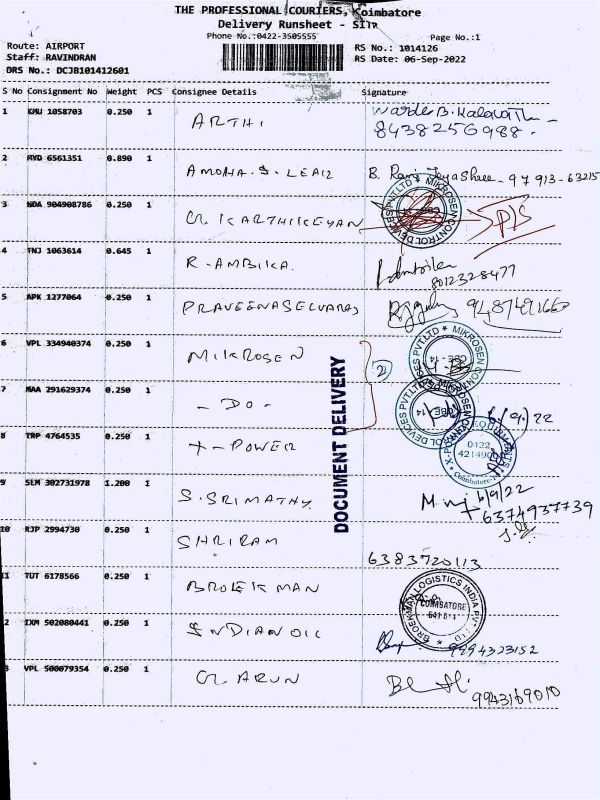 THE PROFESSIONAL COURIERS, Coimbatore
Delivery Runsheet - SITR
Phone No.:0422-3505555
Page No.:1
Route: AIRPORT
RS No.: 1014126
Staff: RAVINDRAN
RS Date: 06-Sep-2022
DRS No.: DCJB101412601
S No Consignment No Weight PCS Consignee Details Signature
1 KMU 1058703 0.250 1 ARTHI
8438256988.
2 MYD 6561351 0.890 1 AMOHA.S.LEAR B. Rama Jeyashree - 97913-63215
3 NDA 904908786 0.250 1 G.KARTHIKEYAN
MIKROSEN CONTROL DEVICES PVT LTD
4 TNJ 1063614 0.645 1 R-AMBIKA.
8012328477
5 APK 1277064 0.250 1 PRAVEENASELVARAJ
6 VPL 334940374 0.250 1 MIKROSEN
MIKROSEN CONTROL DEVICES PVT.LTD
CBE-14
7 MAA 291629374 0.250 1 - DO -
CBE-14
6/9/22
8 TRP 4764535 0.250 1 X-POWER
X-POWER EQUIPMENTS
0422
Coimbatore-
DOCUMENT DELIVERY
9 SLM 302731978 1.200 1 S.SRIMATHY
6/9/22
6374937739
10 RJP 2994730 0.250 1 SHRIRAM
6383720113
11 TUT 6178566 0.250 1 BROEKMAN
BROEKMAN LOGISTICS INDIA PVT. LTD
COIMBATORE
2 IXM 502080441 0.250 1 INDIAN OIL
9994323152
3 VPL 500079354 0.250 1 G.ARUN
9943169010